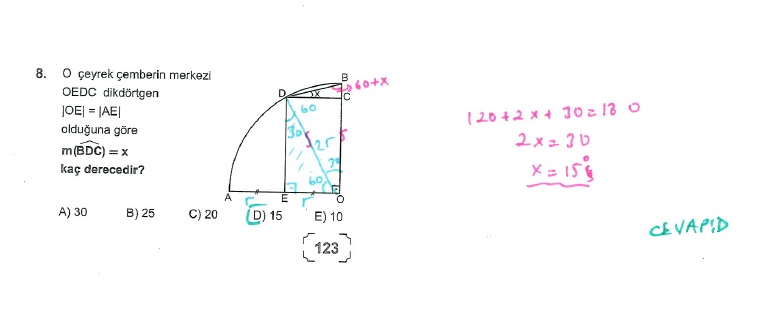 8. O çeyrek çemberin merkezi
OEDC dikdörtgen
|OE| = |AE|
olduğuna göre
m(BDC) = x
kaç derecedir?
B
60+x
D
x
C
60
30
2r
r
30
60
A
E
O
r
r
A) 30 B) 25 C) 20 D) 15 E) 10
123
120+2x+30=180
2x=30
x=15°
CEVAP:D